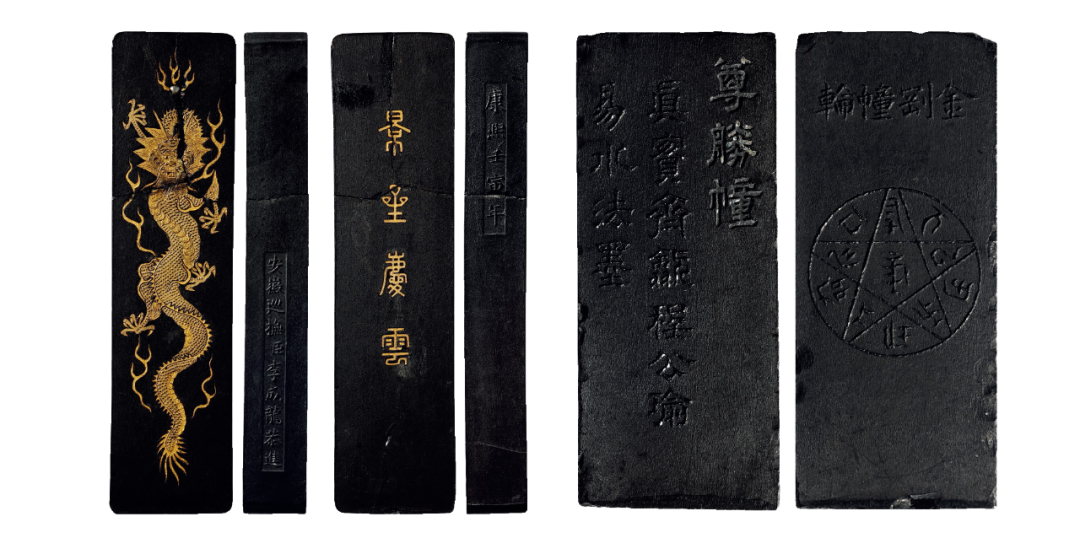 安徽巡撫臣李成龍恭進
景星慶雲
康熙壬寅年
尊勝幢
眞實程公瑜
易水法墨
金剛幢輪